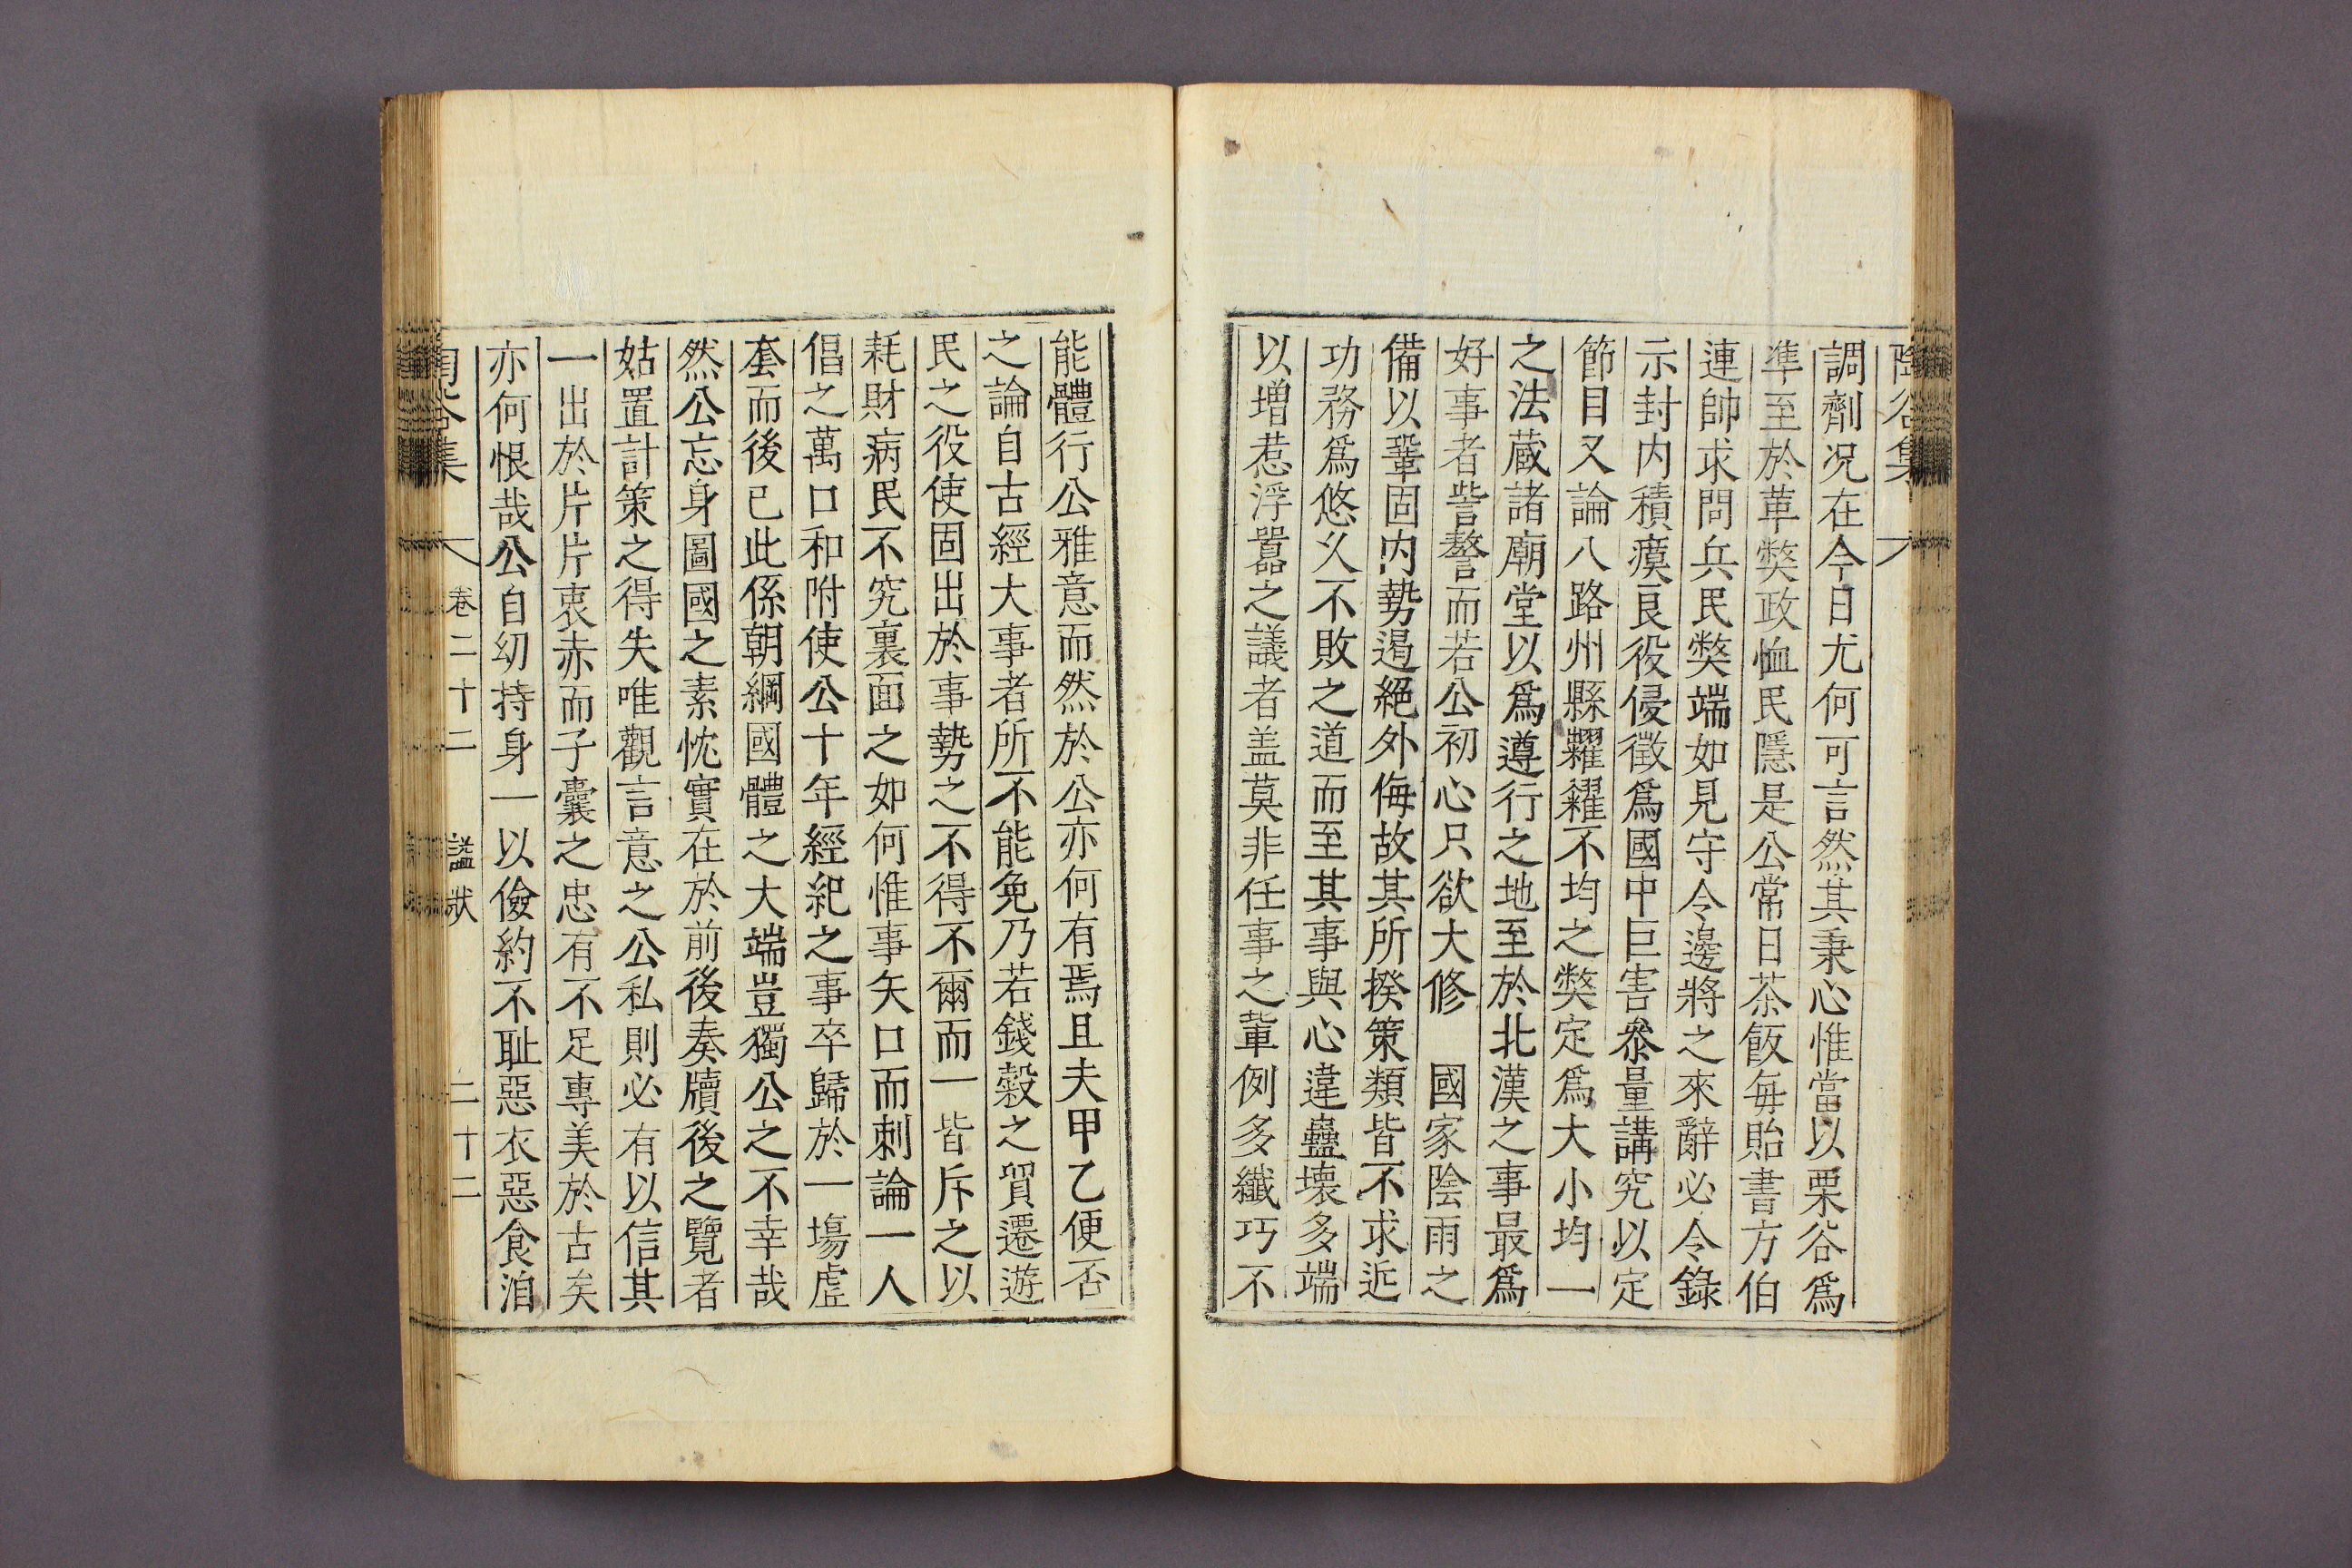 陶谷集
調劑况在今日尤何可言然其秉心惟當以栗谷爲
準至於革獘政恤民隱是公常日茶飯每貽書方伯
連帥求問兵民獘端如見守令邊將之來辭必令錄
示封内積瘼良役侵徵爲國中巨害叅量講究以定
節目又論八路州縣糶糴不均之獘定爲大小均一
之法蔵諸廟堂以爲遵行之地至於北漢之事最爲
好事者訾謷而若公初心只欲大修　國家陰雨之
備以鞏固内勢遏絕外侮故其所揆策類皆不求近
功務爲悠久不敗之道而至其事與心違蠱壊多端
以增惹浮嚣之議者盖莫非任事之軰例多纖巧不
能體行公雅意而然於公亦何有焉且夫甲乙便否
之論自古經大事者所不能免乃若錢穀之貿遷遊
民之役使固出於事勢之不得不爾而一皆斥之以
耗財病民不究裏面之如何惟事矢口而刺論一人
倡之萬口和附使公十年經紀之事卒歸於一塲虛
套而後已此係朝綱國體之大端豈獨公之不幸哉
然公忘身圖國之素忱實在於前後奏牘後之覽者
姑置計策之得失唯觀言意之公私則必有以信其
一出於片片衷赤而子囊之忠有不足專美於古矣
亦何恨哉公自幼持身一以儉約不耻惡衣惡食洎
陶谷集　卷二十二　諡狀　二十二